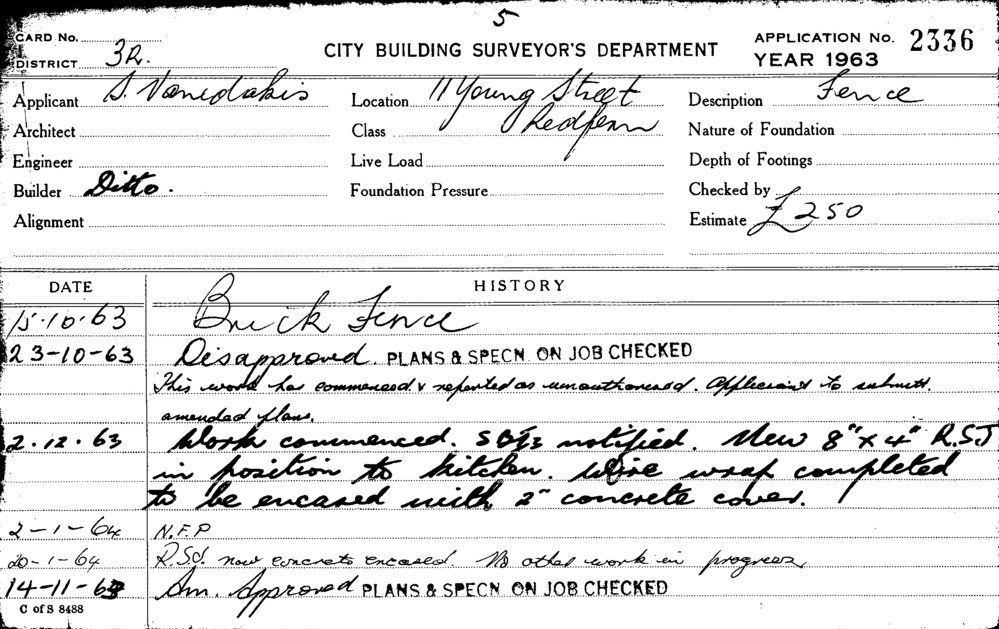 5
CARD No.
DISTRICT 3R.
CITY BUILDING SURVEYOR'S DEPARTMENT
APPLICATION No. 2336
YEAR 1963
Applicant S. Vanidakis
Location 11 Young Street
Redfern
Description Fence
Architect
Class
Nature of Foundation
Engineer
Live Load
Depth of Footings
Builder Ditto.
Foundation Pressure
Checked by
Alignment
Estimate £250
DATE HISTORY
15.10.63 Brick Fence
23-10-63 Disapproved. PLANS & SPECN. ON JOB CHECKED
This work has commenced & reported as unauthorised. Applicant to submit
amended plans.
2.12.63 Work commenced. notified. New 8" x 4" R.S.J
in position to kitchen. Wire wrap completed
to be encased with 2" concrete cover.
2-1-64 N.F.P
20-1-64 R.S.J. now concrete encased. No other work in progress
14-11-63 Am. Approved PLANS & SPECN. ON JOB CHECKED
C of S 8488